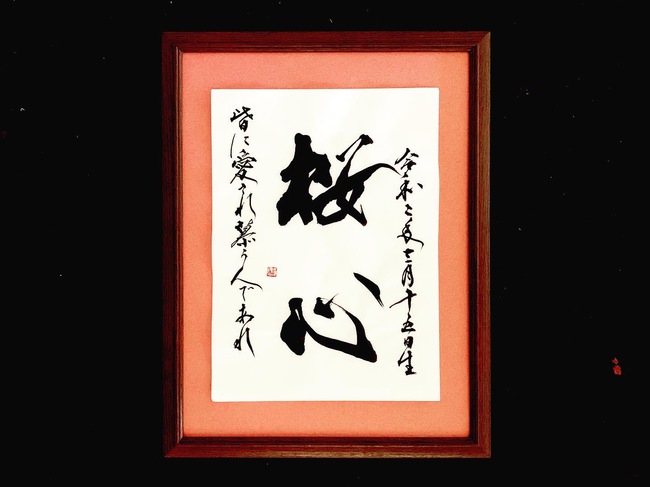 令和二年十二月十五日生
桜心
皆に愛され慕う人であれ